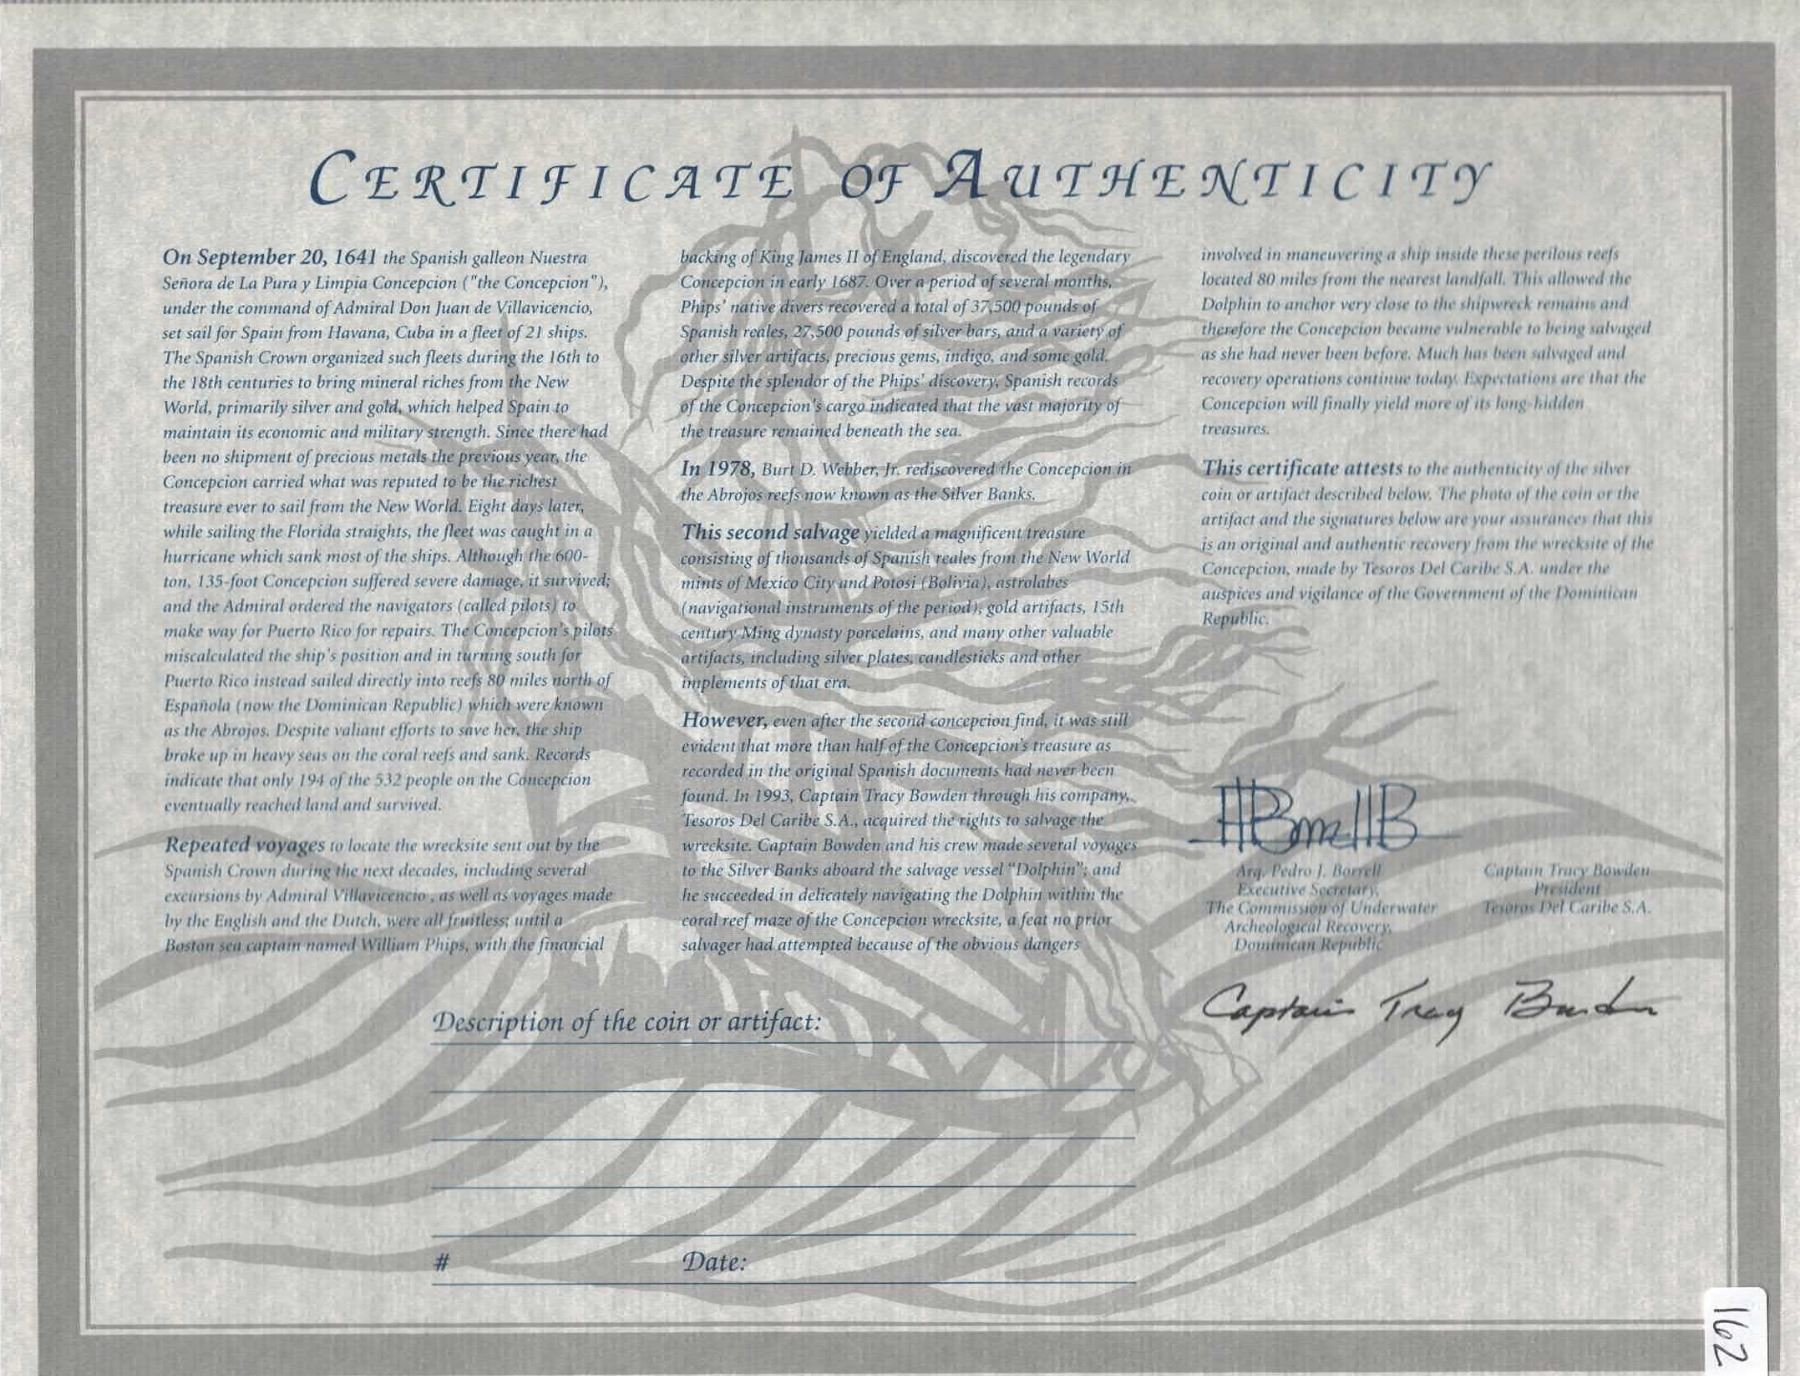 CERTIFICATE OF AUTHENTICITY
On September 20, 1641 the Spanish galleon Nuestra
Señora de La Pura y Limpia Concepcion ("the Concepcion"),
under the command of Admiral Don Juan de Villavicencio,
set sail for Spain from Havana, Cuba in a fleet of 21 ships.
The Spanish Crown organized such fleets during the 16th to
the 18th centuries to bring mineral riches from the New
World, primarily silver and gold, which helped Spain to
maintain its economic and military strength. Since there had
been no shipment of precious metals the previous year, the
Concepcion carried what was reputed to be the richest
treasure ever to sail from the New World. Eight days later,
while sailing the Florida straights, the fleet was caught in a
hurricane which sank most of the ships. Although the 600-
ton, 135-foot Concepcion suffered severe damage, it survived;
and the Admiral ordered the navigators (called pilots) to
make way for Puerto Rico for repairs. The Concepcion's pilots
miscalculated the ship's position and in turning south for
Puerto Rico instead sailed directly into reefs 80 miles north of
Española (now the Dominican Republic) which were known
as the Abrojos. Despite valiant efforts to save her, the ship
broke up in heavy seas on the coral reefs and sank. Records
indicate that only 194 of the 532 people on the Concepcion
eventually reached land and survived.
Repeated voyages to locate the wrecksite sent out by the
Spanish Crown during the next decades, including several
excursions by Admiral Villavicencio , as well as voyages made
by the English and the Dutch, were all fruitless; until a
Boston sea captain named William Phips, with the financial
backing of King James II of England, discovered the legendary
Concepcion in early 1687. Over a period of several months,
Phips' native divers recovered a total of 37,500 pounds of
Spanish reales, 27,500 pounds of silver bars, and a variety of
other silver artifacts, precious gems, indigo, and some gold.
Despite the splendor of the Phips' discovery, Spanish records
of the Concepcion's cargo indicated that the vast majority of
the treasure remained beneath the sea.
In 1978, Burt D. Webber, Jr. rediscovered the Concepcion in
the Abrojos reefs now known as the Silver Banks.
This second salvage yielded a magnificent treasure
consisting of thousands of Spanish reales from the New World
mints of Mexico City and Potosi (Bolivia), astrolabes
(navigational instruments of the period), gold artifacts, 15th
century Ming dynasty porcelains, and many other valuable
artifacts, including silver plates, candlesticks and other
implements of that era.
However, even after the second concepcion find, it was still
evident that more than half of the Concepcion's treasure as
recorded in the original Spanish documents had never been
found. In 1993, Captain Tracy Bowden through his company,
Tesoros Del Caribe S.A., acquired the rights to salvage the
wrecksite. Captain Bowden and his crew made several voyages
to the Silver Banks aboard the salvage vessel "Dolphin"; and
he succeeded in delicately navigating the Dolphin within the
coral reef maze of the Concepcion wrecksite, a feat no prior
salvager had attempted because of the obvious dangers
involved in maneuvering a ship inside these perilous reefs
located 80 miles from the nearest landfall. This allowed the
Dolphin to anchor very close to the shipwreck remains and
therefore the Concepcion became vulnerable to being salvaged
as she had never been before. Much has been salvaged and
recovery operations continue today. Expectations are that the
Concepcion will finally yield more of its long-hidden
treasures.
This certificate attests to the authenticity of the silver
coin or artifact described below. The photo of the coin or the
artifact and the signatures below are your assurances that this
is an original and authentic recovery from the wrecksite of the
Concepcion, made by Tesoros Del Caribe S.A. under the
auspices and vigilance of the Government of the Dominican
Republic.
Arq. Pedro J. Borrell
Executive Secretary,
The Commission of Underwater
Archeological Recovery,
Dominican Republic
Captain Tracy Bowden
President
Tesoros Del Caribe S.A.
Captain Tracy Bowden
Description of the coin or artifact:
# Date:
162